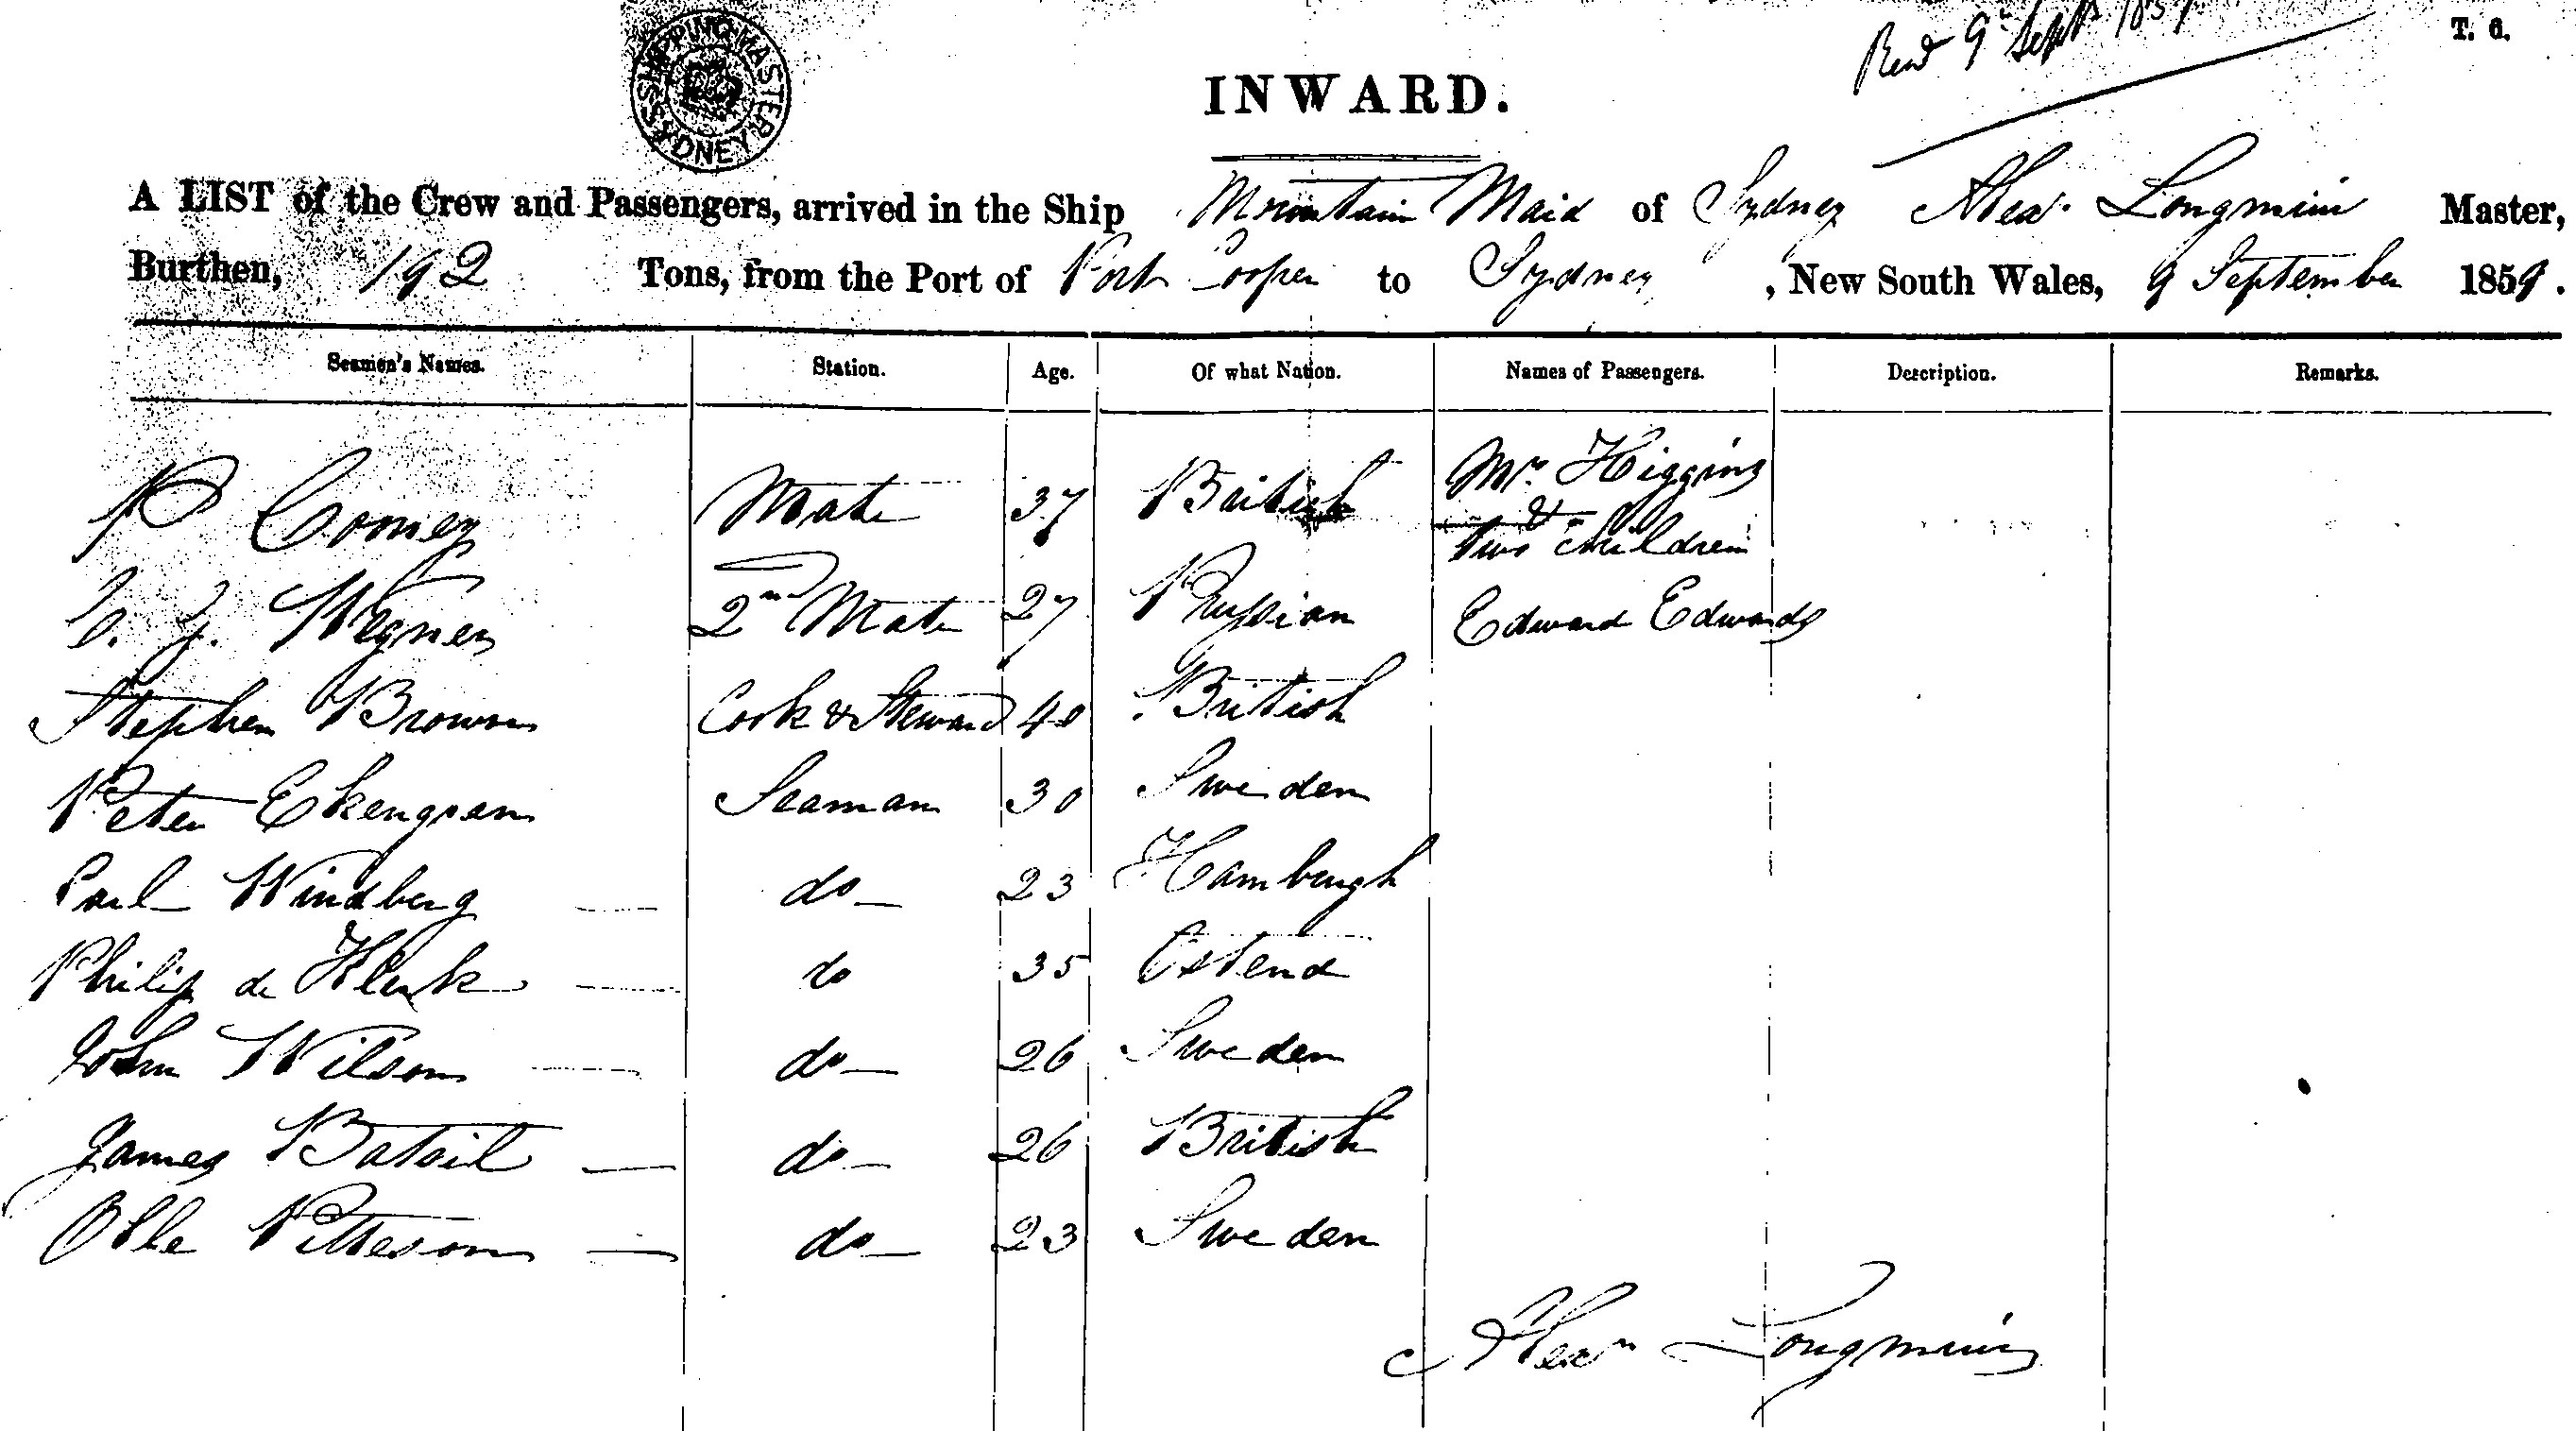 SHIPPING MASTERS SYDNEY
Recd 9th Septr 1859
T. 6.
INWARD.
A LIST of the Crew and Passengers, arrived in the Ship Mountain Maid of Sydney Alexr. Longmuir Master,
Burthen, 192 Tons, from the Port of Port Cooper to Sydney, New South Wales, 9 September 1859.
Seamen's Names. Station. Age. Of what Nation. Names of Passengers. Description. Remarks.
P Comey Mate 37 British Mrs. Higgins
& two children
Wegner 2nd Mate 27 Prussian Edward Edwards
Stephen Brown Cook & Steward 40 British
Peter Ekengren Seaman 30 Sweden
Carl Windberg do 23 Hamburgh
Philip de Klerk do 35 Ostend
John Wilson do 26 Sweden
James Batail do 26 British
Olle Pitteson do 23 Sweden
Alexr Longmuir